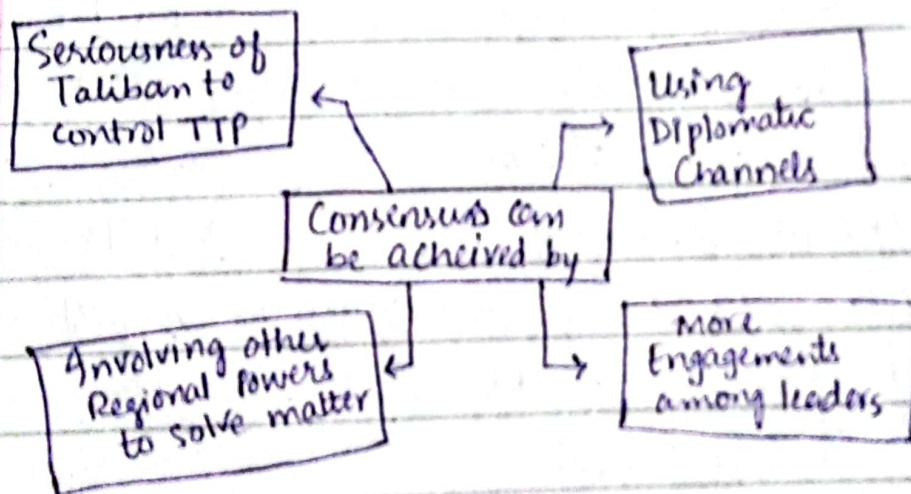 Seriousness of
Taliban to
control TTP
Using
Diplomatic
Channels
Consensus can
be acheived by
Involving other
Regional Powers
to solve matter
More
Engagements
among leaders